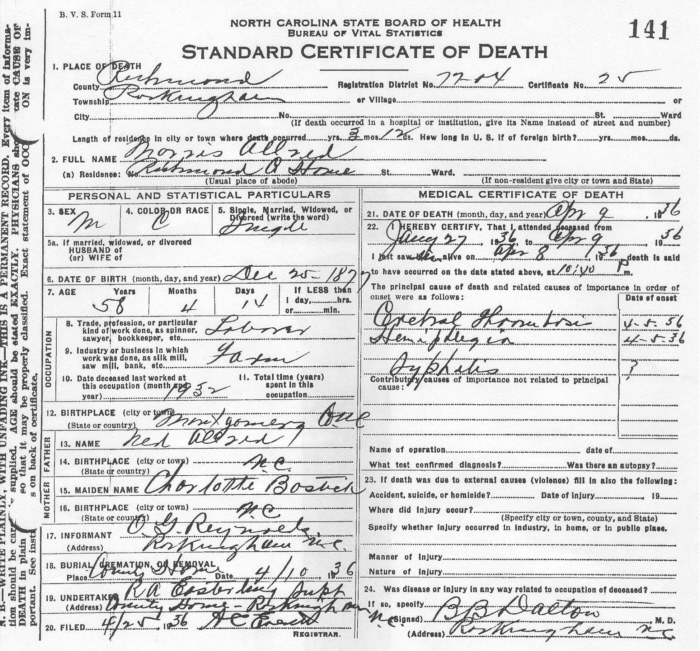 B. V. S. Form 11
NORTH CAROLINA STATE BOARD OF HEALTH
BUREAU OF VITAL STATISTICS
141
STANDARD CERTIFICATE OF DEATH
1. PLACE OF DEATH
County Richmond Registration District No. 77-04 Certificate No. 25
Township Rockingham or Village or
City No. St. Ward
(If death occurred in a hospital or institution, give its Name instead of street and number)
Length of residence in city or town where death occurred yrs. 3 mos. 12 ds. How long in U. S. if of foreign birth? yrs. mos. ds.
2. FULL NAME Morris Allred
(a) Residence: No. Richmond Co Home St. Ward.
(Usual place of abode) (If non-resident give city or town and State)
PERSONAL AND STATISTICAL PARTICULARS
3. SEX M
4. COLOR OR RACE C
5. Single, Married, Widowed, or Divorced (write the word) Single
5a. If married, widowed, or divorced
HUSBAND of
(or) WIFE of
6. DATE OF BIRTH (month, day, and year) Dec 25-1877
7. AGE Years 58 Months 4 Days 14 If LESS than 1 day, hrs. or min.
OCCUPATION
8. Trade, profession, or particular kind of work done, as spinner, sawyer, bookkeeper, etc. Laborer
9. Industry or business in which work was done, as silk mill, saw mill, bank, etc. Farm
10. Date deceased last worked at this occupation (month and year) 1932
11. Total time (years) spent in this occupation
12. BIRTHPLACE (city or town) Montgomery
(State or country)
FATHER
13. NAME Ned Allred
14. BIRTHPLACE (city or town) N C
(State or country)
MOTHER
15. MAIDEN NAME Charlotte Bostick
16. BIRTHPLACE (city or town) N C
(State or country)
17. INFORMANT O G Reynolds
(Address) Rockingham N.C.
18. BURIAL, CREMATION, OR REMOVAL
Place County Home Date 4/10 1936
19. UNDERTAKER R A Easterling Supt
(Address) County Home - Rockingham N.C.
20. FILED 4/25 1936
REGISTRAR.
MEDICAL CERTIFICATE OF DEATH
21. DATE OF DEATH (month, day, and year) Apr 9 1936
22. I HEREBY CERTIFY, That I attended deceased from
Jany 27 1936 to Apr 9 1936
I last saw him alive on Apr 8 1936 death is said
to have occurred on the date stated above, at 10:40 P m.
The principal cause of death and related causes of importance in order of onset were as follows:
Date of onset
Cerebral Thrombosis 4-5-36
Hemiplegia 4-5-36
Syphilis ?
Contributory causes of importance not related to principal cause:
Name of operation date of
What test confirmed diagnosis? Was there an autopsy?
23. If death was due to external causes (violence) fill in also the following:
Accident, suicide, or homicide? Date of injury 19
Where did injury occur?
(Specify city or town, county, and State)
Specify whether injury occurred in industry, in home, or in public place.
Manner of Injury
Nature of Injury
24. Was disease or injury in any way related to occupation of deceased?
If so, specify
(Signed) B B Dalton M. D.
(Address) Rockingham N C
N. B.—WRITE PLAINLY, WITH UNFADING INK—THIS IS A PERMANENT RECORD. Every item of informa-
tion should be care supplied. AGE should be stated EXACTLY. PHYSICIANS sho tate CAUSE OF
DEATH in plain so that it may be properly classified. Exact statement of OCC ON is very im-
portant. See inst s on back of certificate.